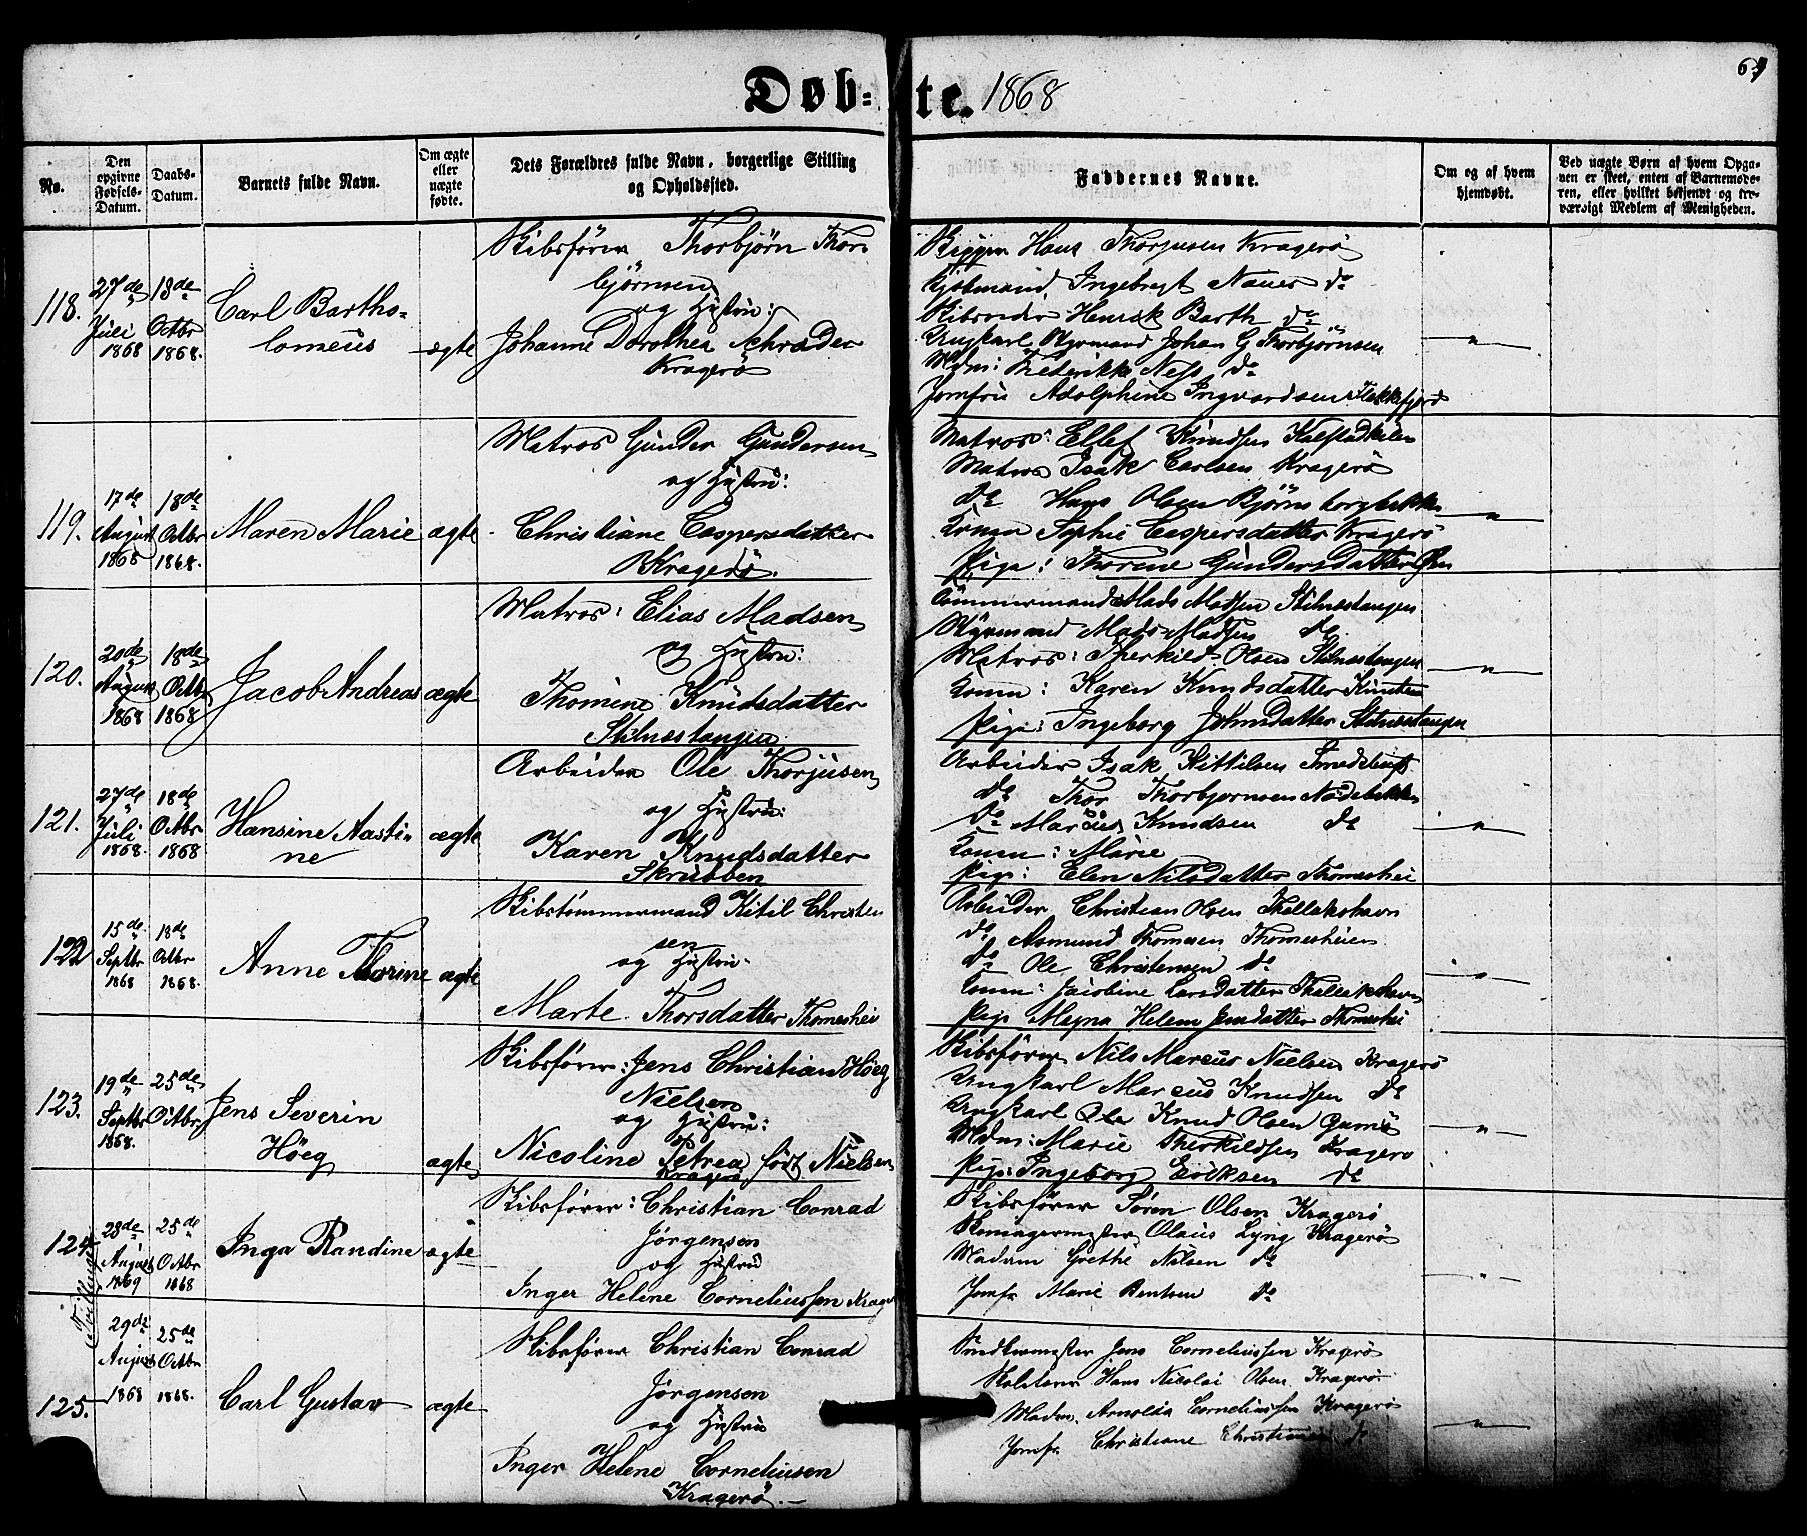 Døb-te. 1868
No.
Den opgivne Fødsels-Datum.
Daabs-Datum.
Barnets fulde Navn.
Om ægte eller uægte fødte.
Dets Forældres fulde Navn, borgerlige Stilling og Opholdssted.
Faddernes Navne.
Om og af hvem hjemdøbt.
Ved uægte Børn af hvem Opgaven er skeet, enten af Barnemoderen, eller hvilket bekjendt og troværdigt Medlem af Menigheden.
118.
27de Juli 1868
18de Octbr 1868.
Carl Bartho-
lomeus
ægte
Skibsfører Thorbjörn Thor-
björnsen
og Hustru:
Johanne Dorothea Schrøder
Kragerö
Skipper Hans Thorjusen Kragerö
Kjöbmand Ingebregt Naues do
Skibsreder Henrik Barth do
Ungkarl Styrmand Johan G Thorbjörnsen
Mdm: Frederikke Ness do
Jomfru Adolphine Ingvardsen Flekkefjord
119.
17de August 1868
18de Octbr 1868.
Maren Marie
ægte
Matros Gunder Gundersen
og Hustru:
Christiane Caspersdatter
Kragerö.
Matros: Ellef Knudsen Kalstadkilen
Matros Isak Carlsen Kragerö
do Hans Olsen Björnsborgbekken
Konen Sophie Caspersdatter Kragerö
Pige: Thorine Gundersdatter
120.
20de August 1868
18de Octbr 1868
Jacob Andreas
ægte
Matros: Elias Madsen
og Hustru:
Thomine Knudsdatter
Stilnestangen
Tömmermand Mads Madsen Stilnestangen
Styrmand Mads Madsen do
Matros: Therkild Olsen Stilnestangen
Konen: Karen Knudsdatter
Pige: Ingeborg Johnsdatter Stilnestangen
121.
27de Juli 1868.
18de Octbr 1868
Hansine Aasti-
ne
ægte
Arbeider Ole Thorjusen
og Hustru:
Karen Knudsdatter
Skrubben
Arbeider Isak Kittilsen Smedsbugt
do Thor Thorbjornsen
do Marcus Knudsen do
Konen: Marie
Pige: Elen Nilsdatter Thomeshei
122
15de Septbr 1868
18de Octbr 1868.
Anne Thorine
ægte
Skibstömmermand Kitil Christen
sen
og Hustru.
Marte Thorsdatter Thomeshei
Arbeider Christian Olsen Thellakshavn
do Asmund Thomesen Thomesheien
do Ole Christensen do
Konen: Jacobine Larsdatter Thellakshavn
Pige Helene Jensdatter Thomeshei
123.
19de Septbr 1868.
25de Octbr
Jens Severin
Höeg
ægte
Skibsfører: Jens Christian Höeg
Nielsen
og Hustru:
Nicoline Petrea födt Nielsen
Kragerö
Skibsfører Nils Marcus Nielsen Kragerö
Ungkarl Marcus Knudsen do
Ungkarl Ole Knud Olsen Gumö
Mdm: Marie Therkildsen Kragerö
Pige: Ingeborg Eriksen do
124
Tvillinger
28de August 1869
25de Octbr 1868
Inga Randine
ægte
Skibsfører: Christian Conrad
Jörgensen
og Hustru
Inger Helene Corneliussen Kragerö
Skibsfører Sören Olsen Kragerö
Olaus Lyng Kragerö
Madam Grethe Nilsen do
Jomfr Marie Bentsen do
125.
29de August 1868
25de Octbr 1868.
Carl Gustav
ægte
Skibsfører Christian Conrad
Jörgensen
og Hustru
Inger Helene Corneliusen
Kragerö.
Snedkermester Jens Corneliussen Kragerö
Hans Nicolai Olsen Kragerö
Madm. Arnolda Corneliussen Kragerö
Jomfr. Christiane do